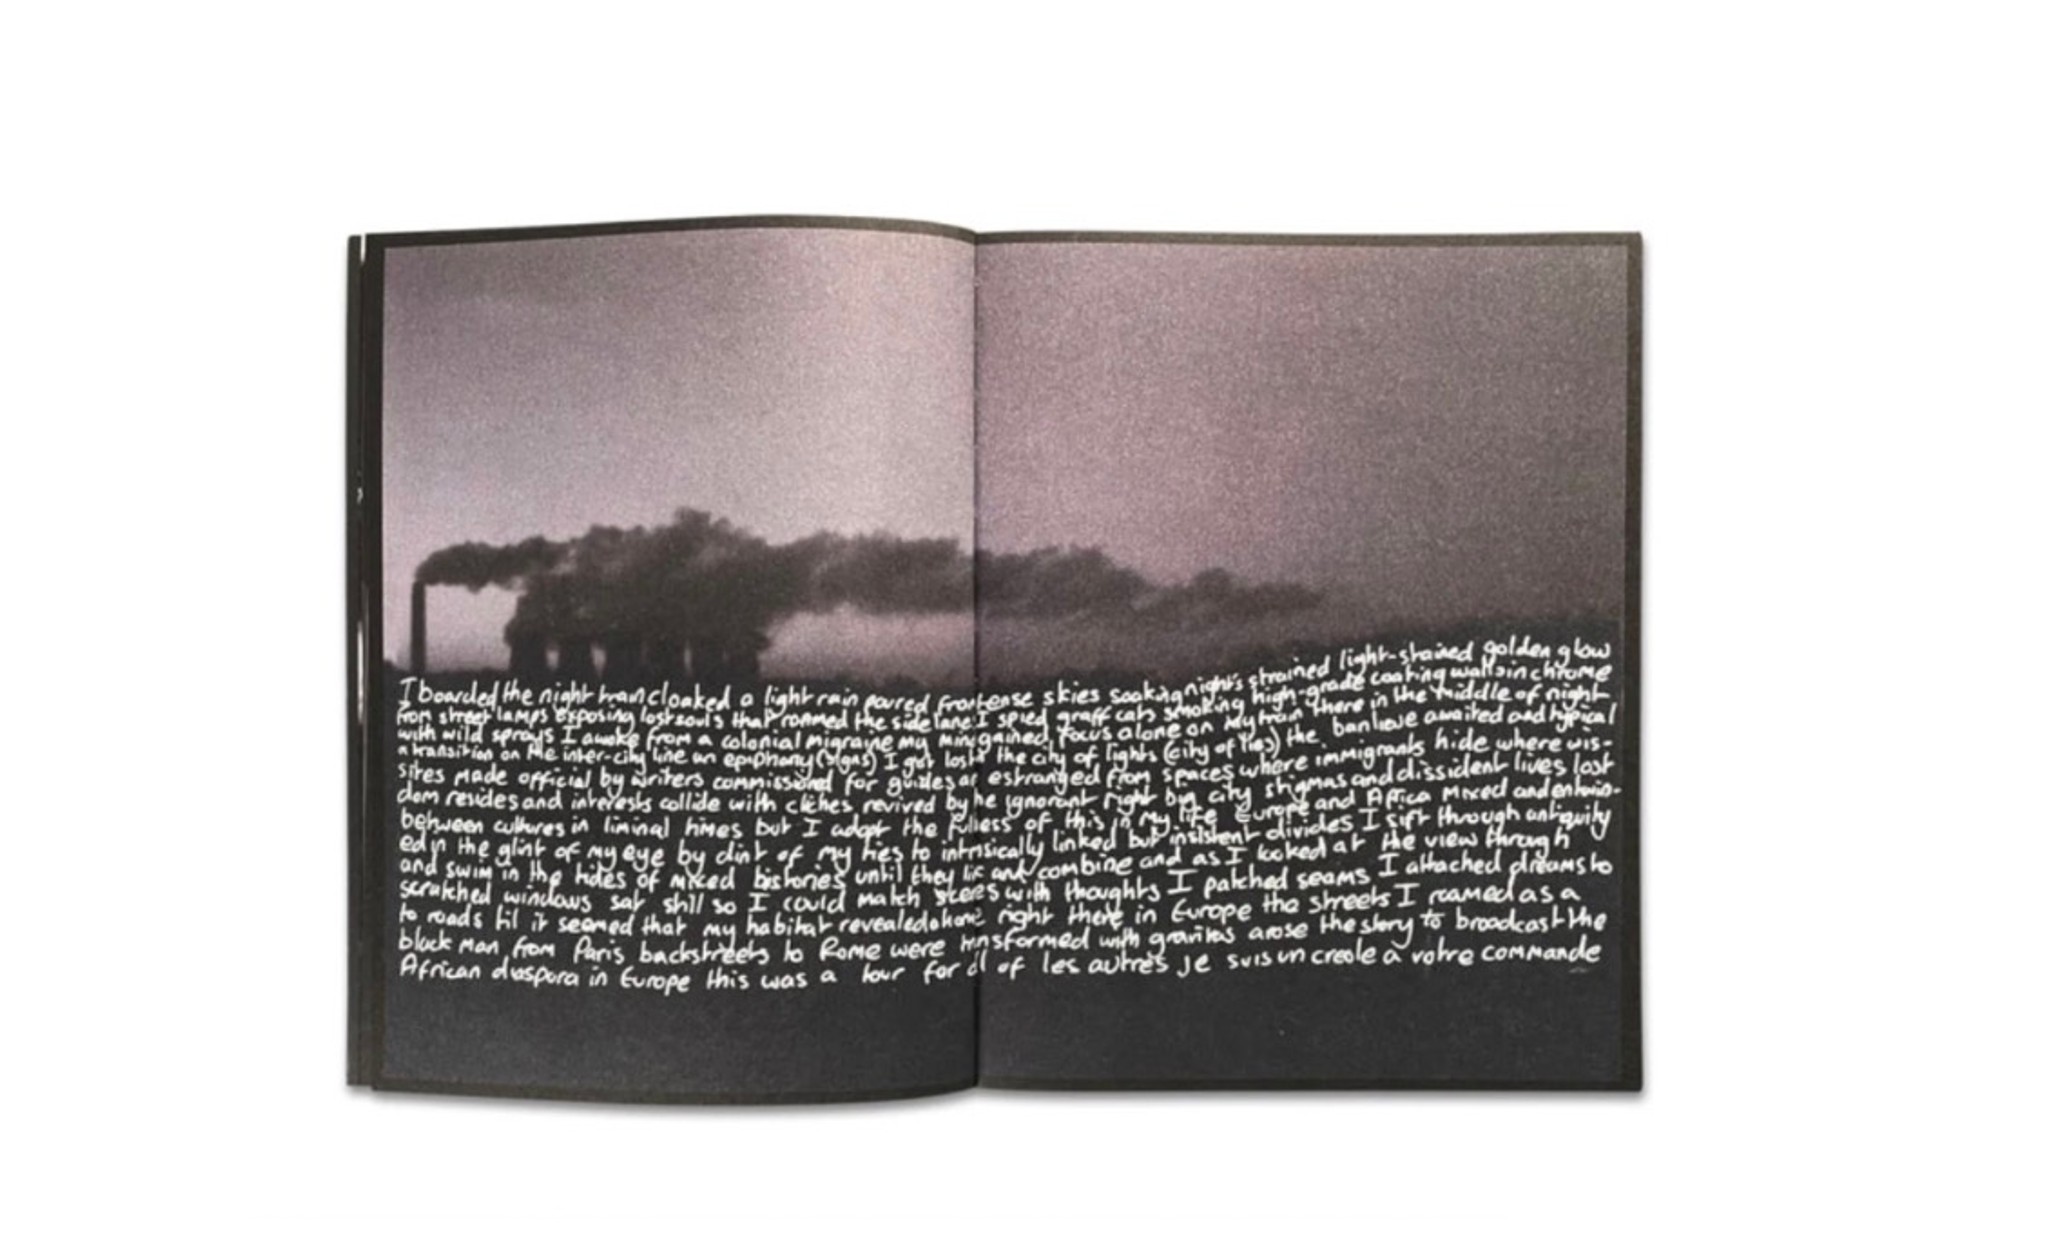 I boarded the night train cloaked a light rain poured from tense skies soaking nights strained light-stained golden glow
from street lamps exposing lost souls that roamed the side lane I spied graff cats smoking high-grade coating walls in chrome
with wild sprays I awoke from a colonial migraine my mind gained focus alone on my train there in the middle of night
a transition on the inter-city line an epiphany (signs) I got lost the city of lights (city of lies) the banlieue awaited and typical
sites made official by writers commissioned for guides are estranged from spaces where immigrants hide where wis-
dom resides and interests collide with cliches revived by the ignorant right big city stigmas and dissident lives lost
between cultures in liminal times but I adopt the fullness of this in my life Europe and Africa mixed and entwin-
ed in the glint of my eye by dint of my ties to intrisically linked but insistent divides I sift through antiquity
and swim in the tides of mixed histories until they combine and as I looked at the view through
scratched windows sat still so I could match with thoughts I patched seams I attached dreams to
to roads til it seemed that my habitat revealed right there in Europe the streets I roamed as a
black man from Paris backstreets to Rome were transformed with gravitas arose the story to broadcast the
African diaspora in Europe this was a tour for all of les autres je suis un creole a votre commande